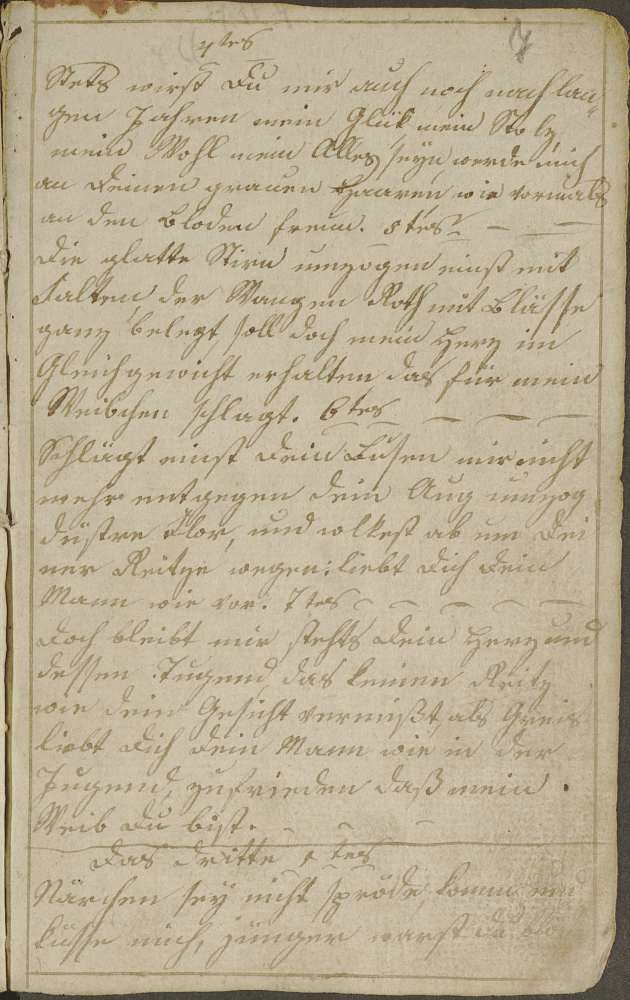 7
4tes
Stets wirst Du mir auch noch nach lan„
gen Jahren mein Glük mein Stolz
mein Wohl mein Alles seyn, werde mich
an Deinen grauen Haaren wie vormals
an den bloden freuen. 5tes
Die glatte Stirn umzogen einst mit
Falten der Wangen Roth mit Blässe
ganz belegt soll doch mein Herz im
Gleichgewicht erhalten das für mein
Weibchen schlagt. 6tes
Schlägt einst Dein Busen mir nicht
mehr entgegen Dein Aug umzog
düstrer Flor, und welkest ab um Dei
ner Reitze wegen: liebt Dich Dein
Mann wie vor. 7tes
Doch bleibt mir stehts Dein Herz und
dessen Tugend das keinen Reitz
wie dein Gesicht vermißt, als Greis
liebt Dich Dein Mann wie in der
Jugend, zufrieden daß mein
Weib Du bist.
Das dritte 1tes
Närchen sey nicht spröde komm und
küsse mich, jünger warst du